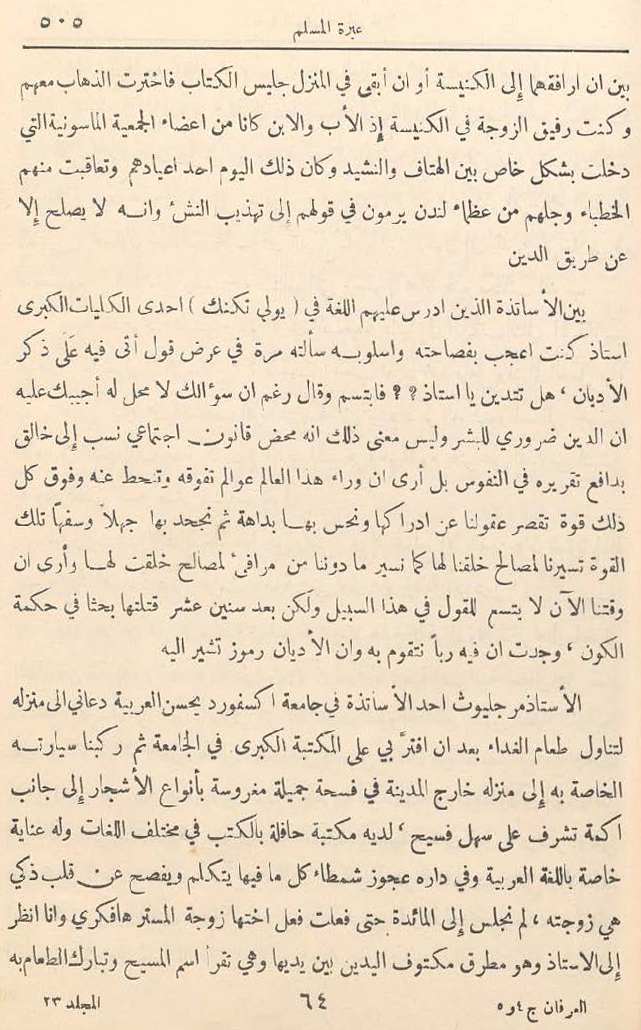 عبرة المسلم
٥٠٥
بين ان ارافقهما إلى الكنيسة أو ان أبقى في المنزل جليس الكتاب فاخترت الذهاب معهم
وكنت رفيق الزوجة في الكنيسة إذ الأب والابن كانا من اعضاء الجمعية الماسونية التي
دخلت بشكل خاص بين الهتاف والنشيد وكان ذلك اليوم احد اعيادهم وتعاقبت منهم
الخطباء وجلهم من عظماء لندن يرمون في قولهم إلى تهذيب النشئ وانه لا يصلح إلا
عن طريق الدين
بين الأساتذة الذين ادرس عليهم اللغة في ( يولي تكنك ) احدى الكليات الكبرى
استاذ كنت اعجب بفصاحته واسلوبه سألته مرة في عرض قول أتى فيه عَلَى ذكر
الأديان ، هل تتدين يا استاذ ? ? فابتسم وقال رغم ان سؤالك لا محل له أجيبك عليه
ان الدين ضروري للبشر وليس معنى ذلك انه محض قانون اجتماعي نسب إلى خالق
بدافع تقريره في النفوس بل أرى ان وراء هذا العالم عوالم تفوقه وتنحط عنه وفوق كل
ذلك قوة تقصر عقولنا عن ادراكها ونحس بها بداهة ثم نجحد بها جهلاً وسفهاً تلك
القوة تسيرنا لمصالح خلقنا لها كما نسير ما دوننا من مرافئ لمصالح خلقت لها وأرى ان
وقتنا الآن لا يتسع للقول في هذا السبيل ولكن بعد سنين عشر قتلتها بحثا في حكمة
الكون ، وجدت ان فيه رباً نتقوم به وان الأديان رموز تشير اليه
الأستاذ مرجليوث احد الأساتذة في جامعة اكسفورد يحسن العربية دعاني الى منزله
لتناول طعام الغداء بعد ان افترَّ بي على المكتبة الكبرى في الجامعة ثم ركبنا سيارته
الخاصة به إلى منزله خارج المدينة في فسحة جميلة مغروسة بأنواع الأشجار إلى جانب
اكمة تشرف على سهل فسيح ، لديه مكتبة حافلة بالكتب في مختلف اللغات وله عناية
خاصة باللغة العربية وفي داره عجوز شمطاء كل ما فيها يتكلم ويفصح عن قلب ذكي
هي زوجته ، لم نجلس إلى المائدة حتى فعلت فعل اختها زوجة المستر هافكري وانا انظر
إلى الاستاذ وهو مطرق مكتوف اليدين بين يديها وهي تقرأ اسم المسيح وتبارك الطعام به
العرفان ج ٤ و ٥
٦٤
المجلد ٢٣